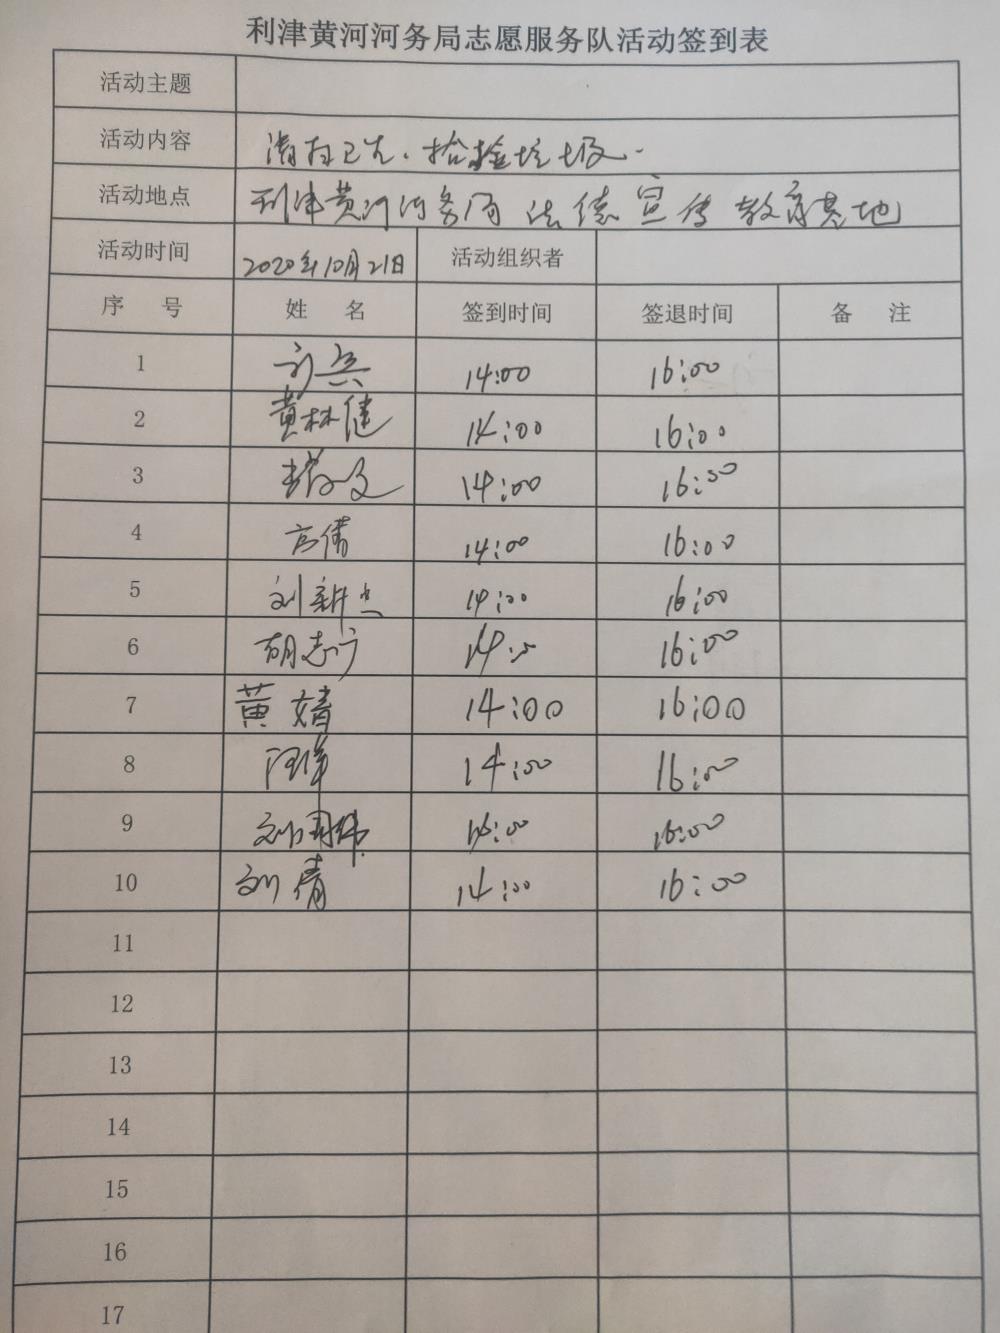 利津黄河河务局志愿服务队活动签到表
活动主题
活动内容 清扫卫生、捡拾垃圾.
活动地点 利津黄河河务局法德宣传教育基地
活动时间 2020年10月21日 活动组织者
序 号 姓 名 签到时间 签退时间 备 注
1 14:00 16:00
2 黄林健 14:00 16:00
3 14:00 16:00
4 高倩 14:00 16:00
5 刘新 14:00 16:00
6 胡志 14:00 16:00
7 黄婧 14:00 16:00
8 14:00 16:00
9 刘国 16:00
10 刘倩 14:00 16:00
11
12
13
14
15
16
17